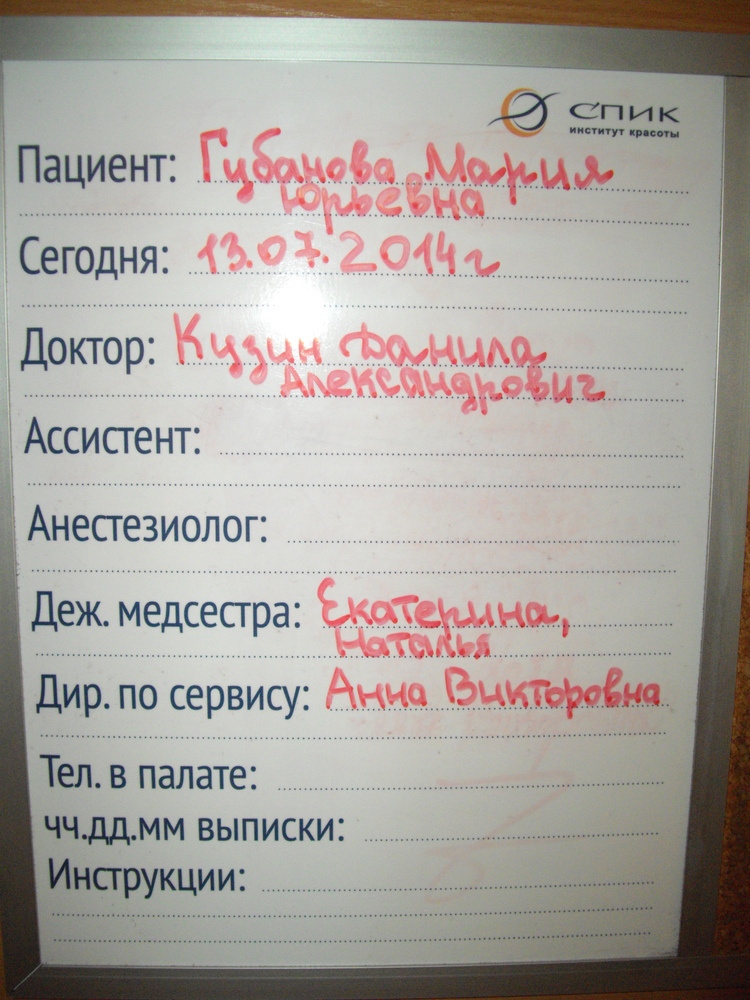 СПИК
институт красоты
Пациент: Губанова Мария
Юрьевна
Сегодня: 13.07.2014г
Доктор: Кузин Данила
Александрович
Ассистент:
Анестезиолог:
Деж. медсестра: Екатерина,
Наталья
Дир. по сервису: Анна Викторовна
Тел. в палате:
чч.дд.мм выписки:
Инструкции: